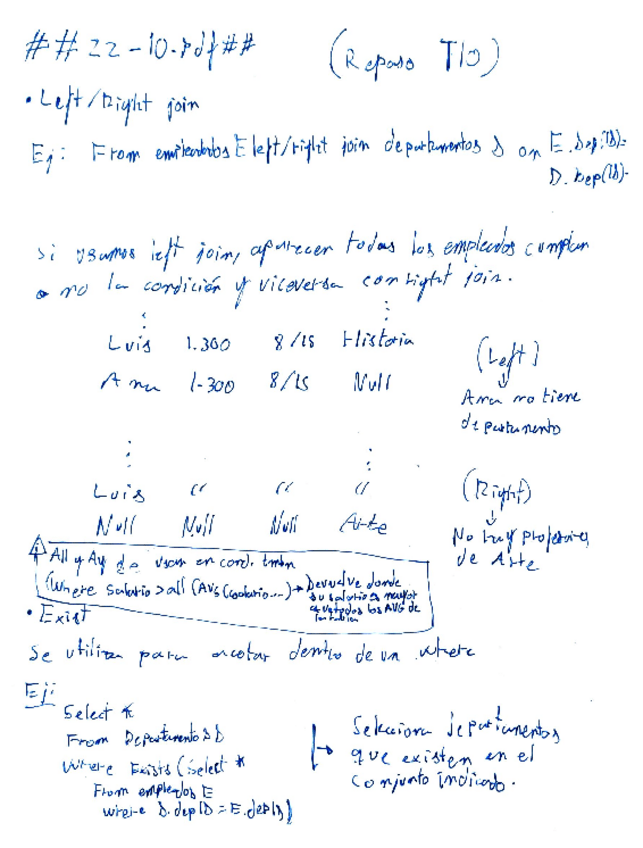 ##22-10.pdf## (Repaso T10)
• Left/Right join
Ej: From empleados E left/right join departamentos D on E.Dep(ID)=
D.Dep(ID).
si usamos left join, aparecer todos los empleados cumplan
o no la condición y viceversa con right join.
Luis 1.300 8/15 Historia (Left)
Ana 1.300 8/15 Null Ana no tiene
departamento
Luis " " " (Right)
Null Null Null Arte No hay profesores
de Arte
All y Ay se usan en cond. tmbn
(Where salario > all (AVG(salario...) → Devuelve donde
su salario es mayor
que todos los AVG de
• Exist
se utiliza para acotar dentro de un where
Ej:
Select *
From Departamentos D
Where Exists (Select *
From empleados E
where D.depID = E.depID)
Selecciona departamentos
que existen en el
conjunto indicado.